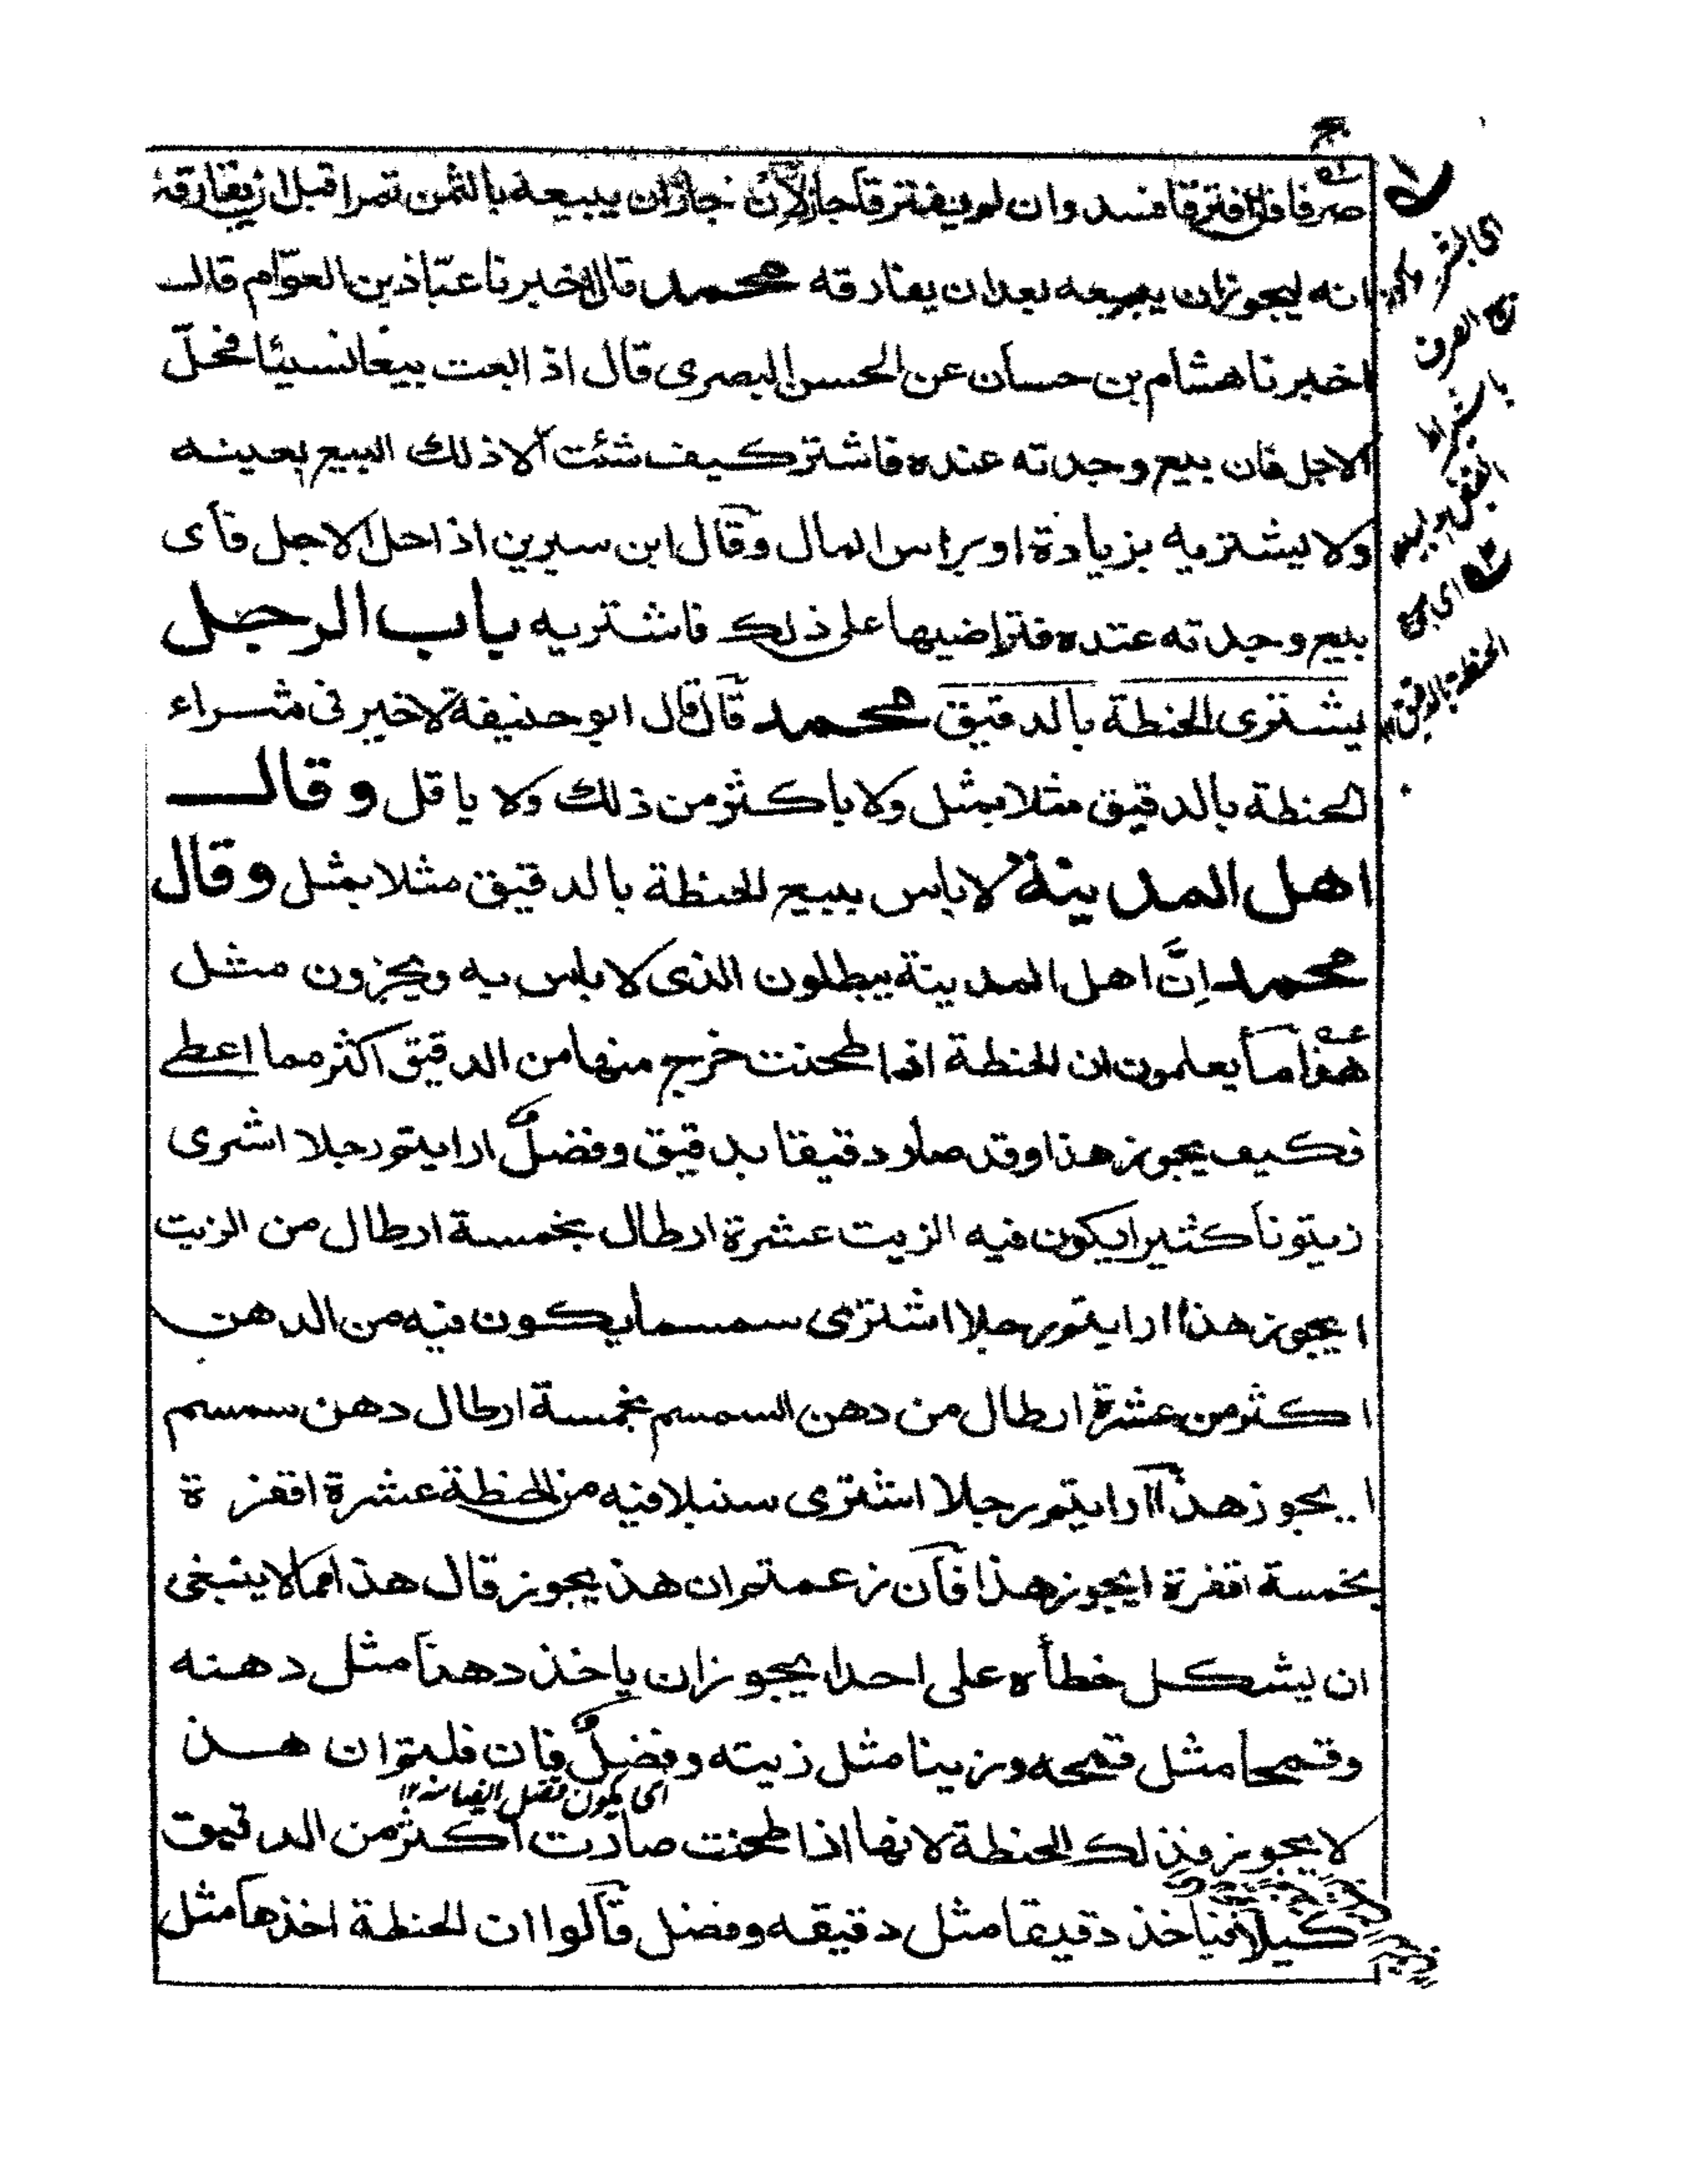 صرفا فان افترقا فسد وان لم يفترقا جاز لان جاز ان يبيعه بالثمن تمرا قبل ان يفارقه
انه ليجوز ان يبيعه بعد ان يفارقه محمد قال اخبرنا عبّاد بن العوّام قال
اخبرنا هشام بن حسان عن الحسن البصرى قال اذا بعت بيعا نسيئا فحلّ
الاجل فان بيع وجدته عنده فاشتر كيف شئت الا ذلك البيع بعينه
ولا يشتريه بزيادة او براس المال وقال ابن سيرين اذا حل الاجل فأى
بيع وجدته عنده فتراضيها على ذلك فاشتريه باب الرجل
يشترى الحنطة بالدقيق محمد قال قال ابو حنيفة لا خير فى شراء
الحنطة بالدقيق مثلا بمثل ولا باكثر من ذلك ولا ياقل وقال
اهل المدينة لا باس ببيع الحنطة بالدقيق مثلا بمثل وقال
محمد اِنَّ اهل المدينة يبطلون الذى لا باس به ويجيزون مثل
هذا اما يعلمون ان الحنطة اذا طحنت خرج منها من الدقيق اكثر مما اعطى
فكيف يجوز هذا وقد صار دقيقا بدقيق وفضلٌ ارايتم رجلا اشرى
زيتونا كثيرا يكون فيه الزيت عشرة ارطال بخمسة ارطال من الزيت
ايجوز هذا ارايتم رجلا اشترى سمسما يكون فيه من الدهن
اكثر من عشرة ارطال من دهن السمسم بخمسة ارطال دهن سمسم
ايجوز هذا ارايتم رجلا اشترى سنبلا فيه من الحنطة عشرة اقفزة
بخمسة اقفزة ايجوز هذا فان زعمتم ان هذ يجوز قال هذا مما لا ينبغى
ان يشكل خطأه على احد ايجوز ان ياخذ دهنا مثل دهنه
وقمحا مثل قمحه وزيتا مثل زيته وفضلٌ فان قلتم ان هذ
اى يكون فضل ايضا منه ١٢
لا يجوز فذلك الحنطة لانها اذا طحنت صارت اكثر من الدقيق
كيلا فياخذ دقيقا مثل دقيقه وفضل قالوا ان الحنطة اخذها مثل